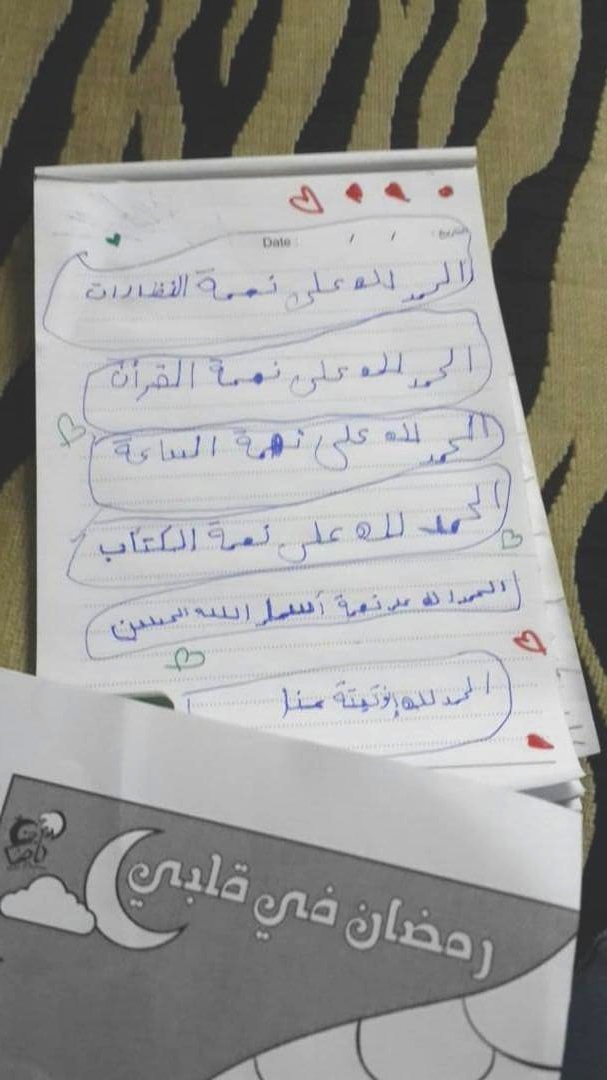 Date : / / التاريخ
الحمد لله على نعمة النظارات
الحمد لله على نعمة القرآن
الحمد لله على نعمة الساعة
الحمد لله على نعمة الكتاب
الحمد الله على نعمة أسماء الله الحسنى
الحمد لله
رمضان في قلبي